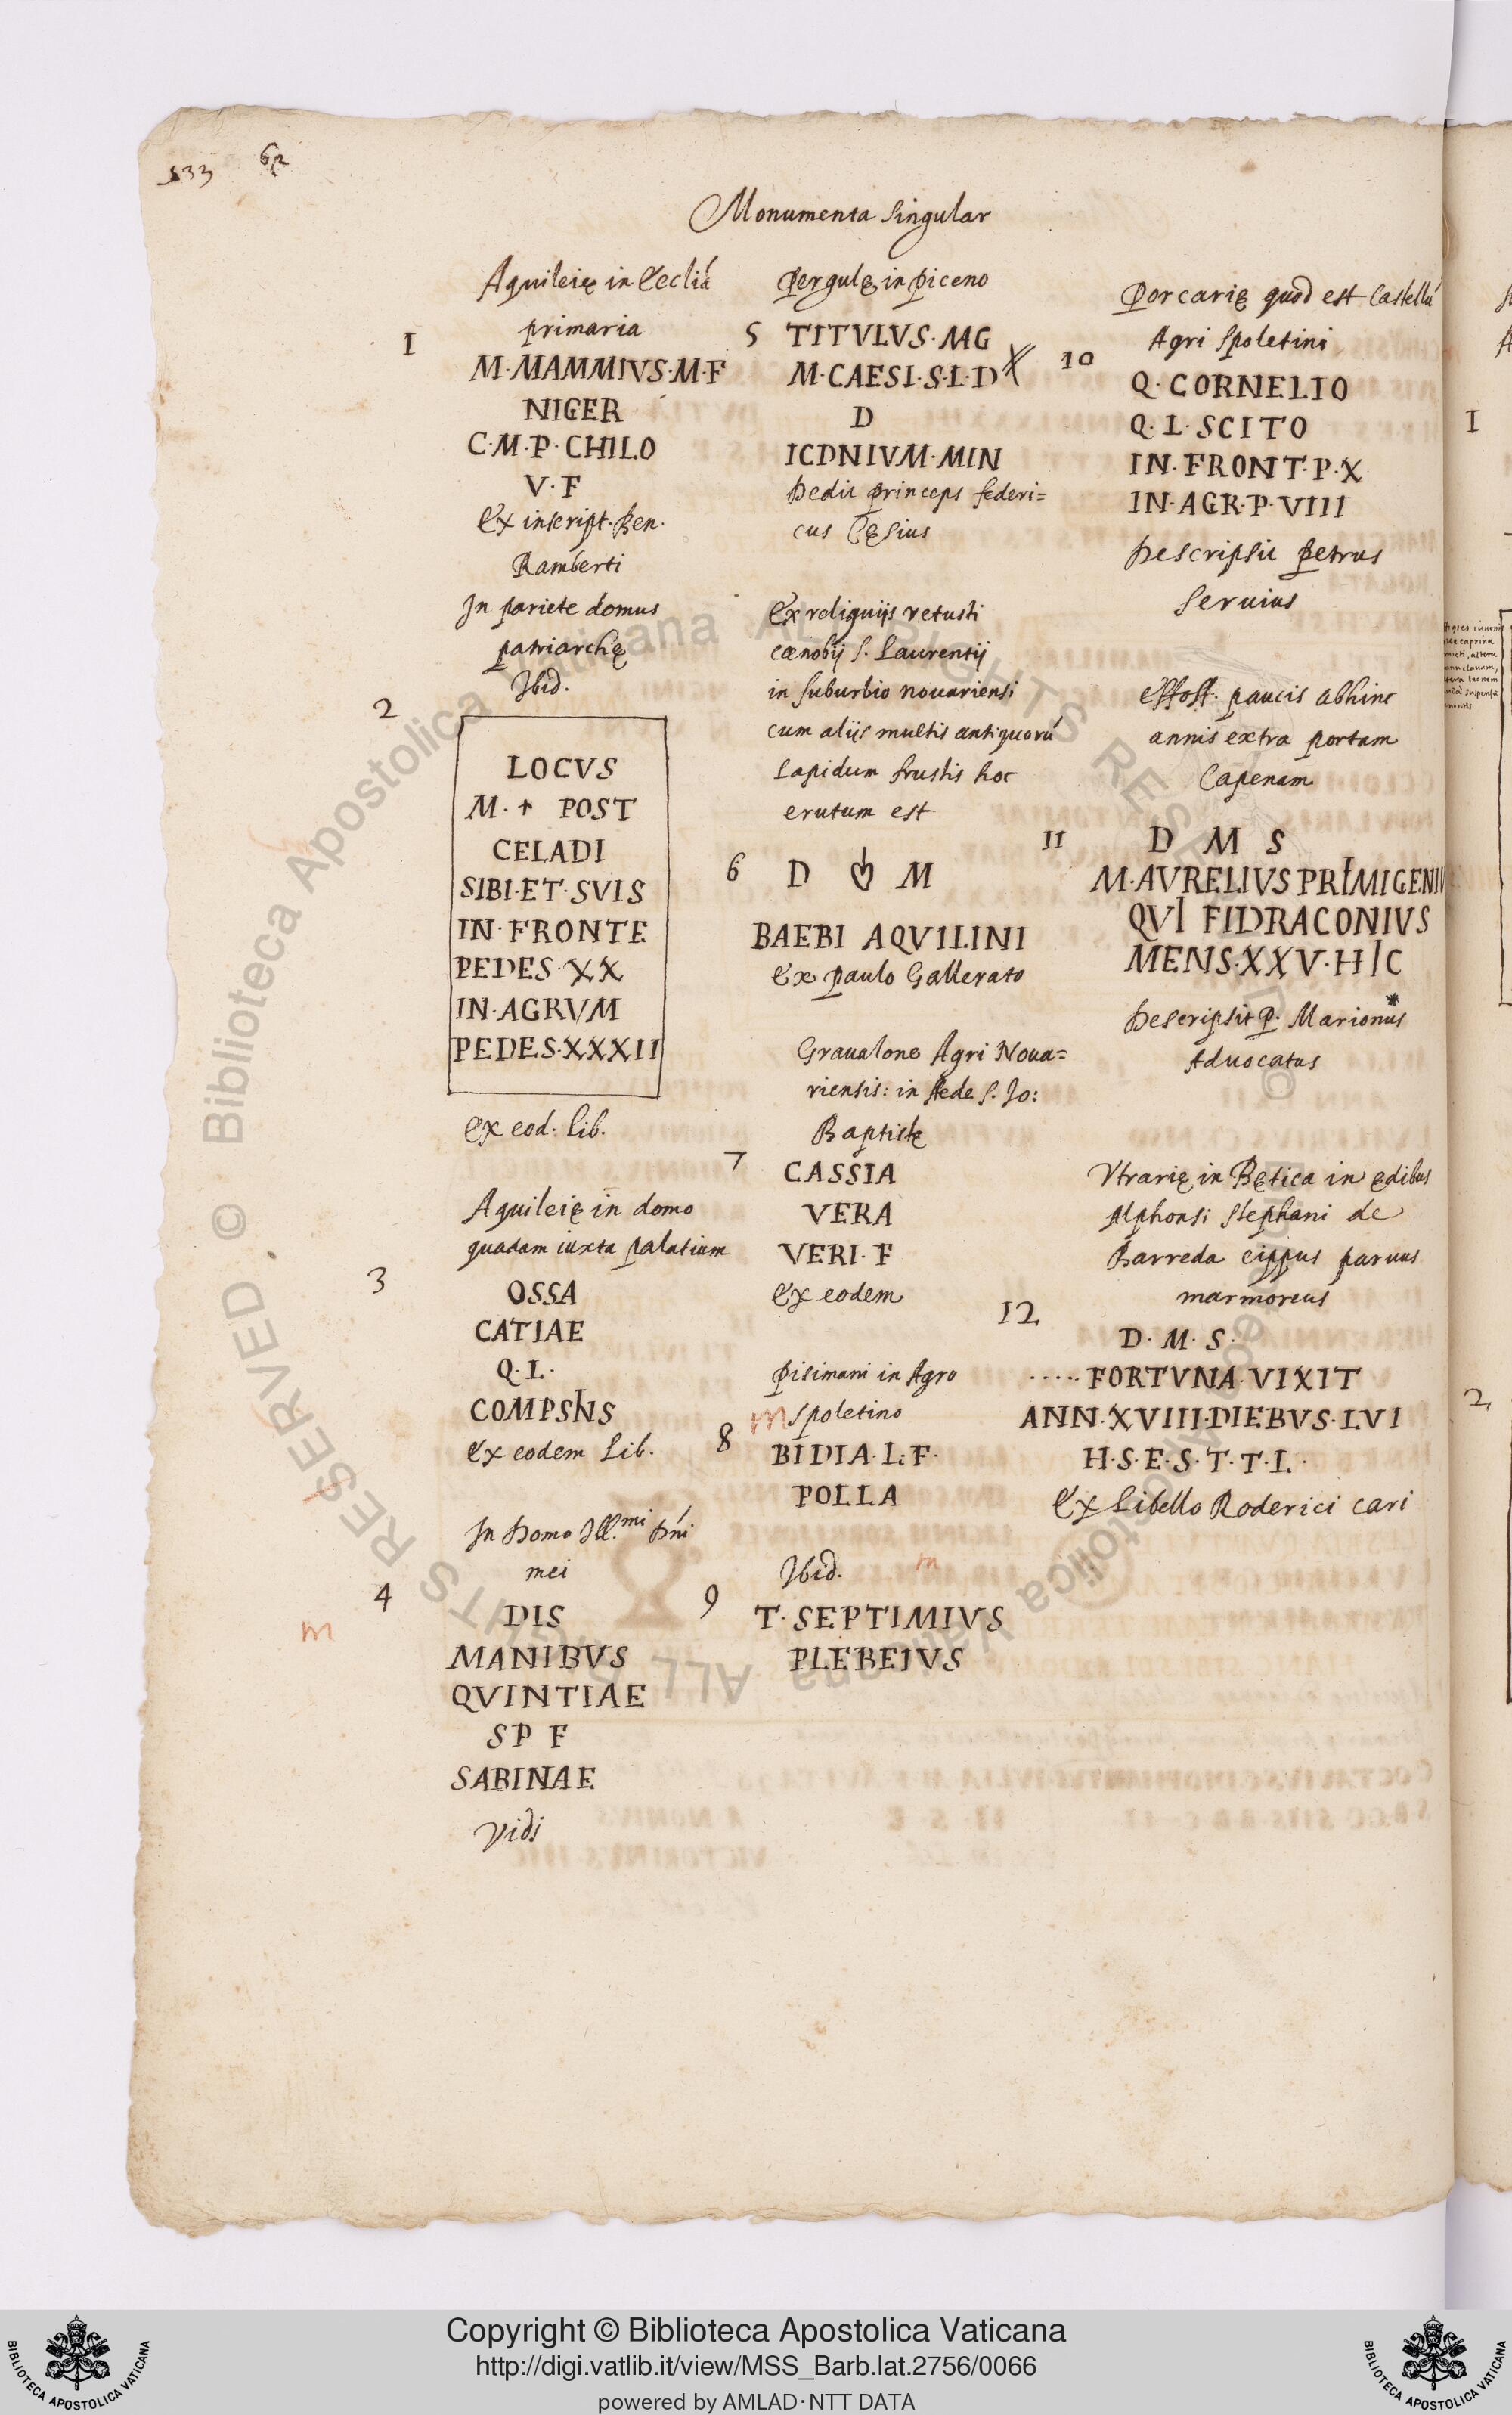 533 62
Monumenta Singular
Aquileię in Eccliá
primaria
1
M·MAMMIVS·M·F
NIGER
C·M·P·CHILO
V·F
Ex inscript. Ben.
Ramberti
In pariete domus
patriarchę
Ibid.
2
LOCVS
M· POST
CELADI
SIBI·ET·SVIS
IN·FRONTE
PEDES·XX
IN·AGRVM
PEDES·XXXII
Ex eod: lib.
Aquileię in domo
quadam iuxta palatium
3
OSSA
CATIAE
Q·L·
Ex eodem lib.
In Domo Ill.mi Dńi
mei
4
DIS
MANIBVS
QVINTIAE
SP F
SABINAE
Vidi
Pergulę in piceno
5 TITVLVS·MG
M·CAESI·S·L·D
D
ICDNIVM·MIN
Dedit princeps federi=
cus Cęsius
Ex reliquijs vetusti
cœnobij S. Laurentij
in suburbio nouariensi
cum alijs multis antiquorú
lapidum frustis hoc
erutum est
6 D M
BAEBI AQVILINI
Ex paulo Gallerato
Graualone Agri Noua=
riensis: in Aede S. Jo:
Baptistę
7
CASSIA
VERA
VERI·F
Ex eodem
Pisimani in Agro
m Spoletino
8 BIDIA·L·F·
POLLA
Ibid. m
9 T·SEPTIMIVS
PLEBEIVS
Porcarię quod est Castellú
Agri Spoletini
10
Q·CORNELIO
Q·L·SCITO
IN·FRONT·P·X
IN·AGR·P·VIII
Descripsit Petrus
Seruius
Effoss. paucis abhinc
annis extra portam
Capenam
11 D M S
M·AVRELIVS PRIMIGENIV
QVI FIDRACONIVS
MENS·XXV·HIC
Descripsit P. Marionus
Aduocatus
Vtrarię in Bętica in ędibus
Alphonsi Stephani de
Barreda cippus paruus
marmoreus
12
D·M·S·
·····FORTVNA·VIXIT
ANN·XVIII·DIEBVS·LVI
H·S·E·S·T·T·L·
Ex Libello Roderici Cari
m
I
2
© Biblioteca Apostolica Vaticana ALL RIGHTS RESERVED
Copyright © Biblioteca Apostolica Vaticana
http://digi.vatlib.it/view/MSS_Barb.lat.2756/0066
powered by AMLAD·NTT DATA
BIBLIOTECA APOSTOLICA VATICANA
BIBLIOTECA APOSTOLICA VATICANA